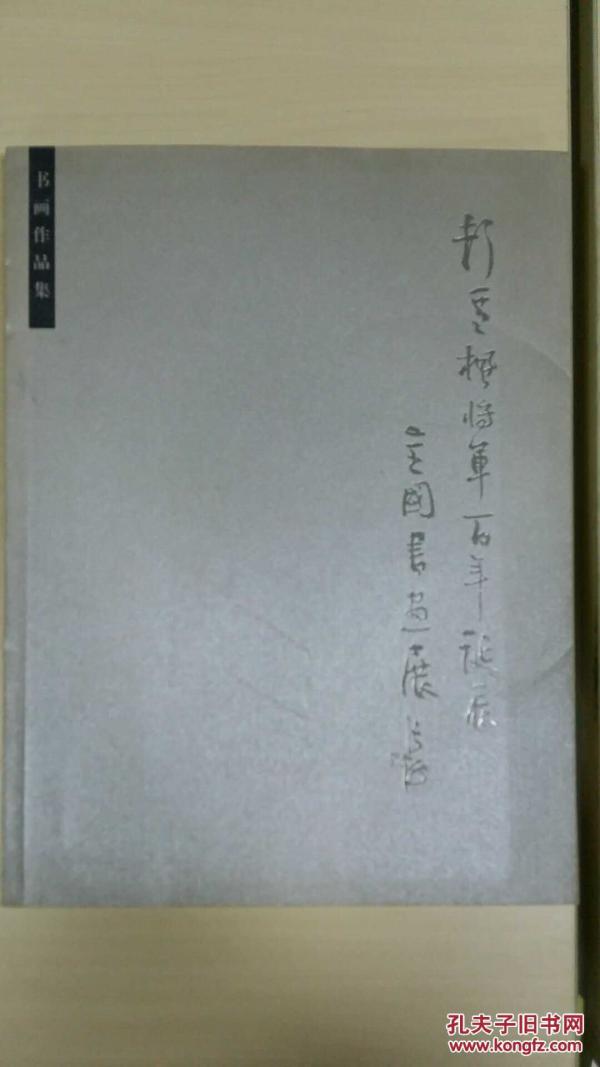 彭雪楓将軍百年誕辰
全國書画展
书画作品集
孔夫子旧书网
www.kongfz.com